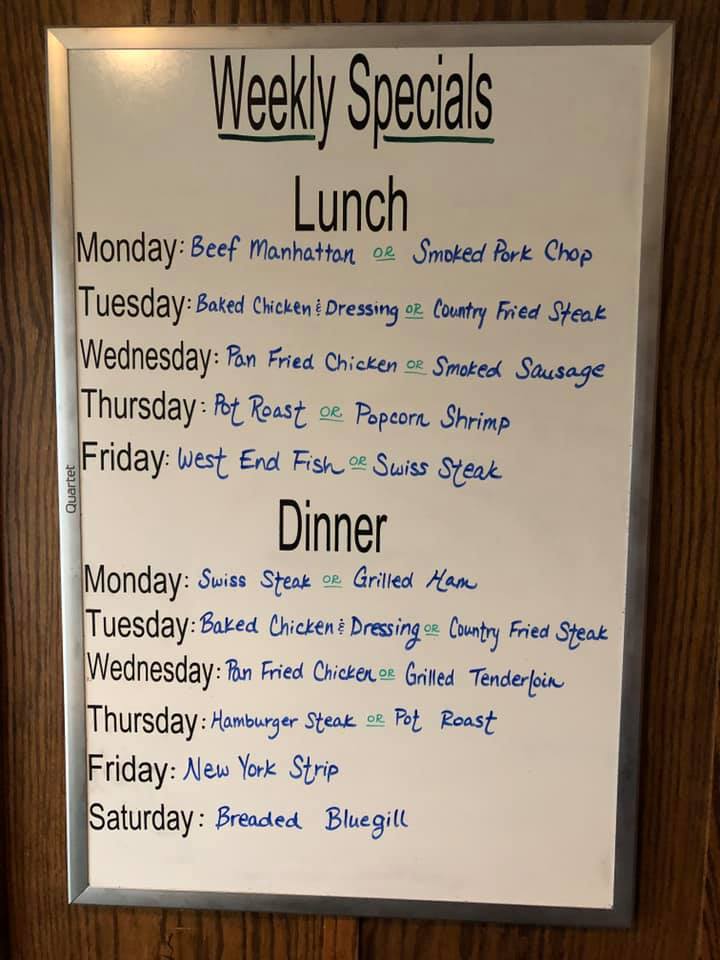 Weekly Specials
Lunch
Monday: Beef Manhattan OR Smoked Pork Chop
Tuesday: Baked Chicken & Dressing OR Country Fried Steak
Wednesday: Pan Fried Chicken OR Smoked Sausage
Thursday: Pot Roast OR Popcorn Shrimp
Friday: West End Fish OR Swiss Steak
Quartet
Dinner
Monday: Swiss Steak OR Grilled Ham
Tuesday: Baked Chicken & Dressing OR Country Fried Steak
Wednesday: Pan Fried Chicken OR Grilled Tenderloin
Thursday: Hamburger Steak OR Pot Roast
Friday: New York Strip
Saturday: Breaded Bluegill